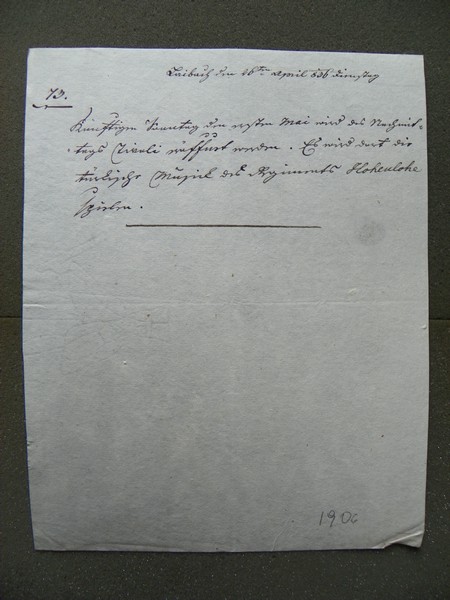 Laibach den 26ten April 836 Dienstag
73.
Künftigen Sonntag den ersten Mai wird des Nachmit-
-tags Tivoli eröffnet werden. Es wird dort die
türkische Musick des Regiments Hohenlohe
spielen.
1906